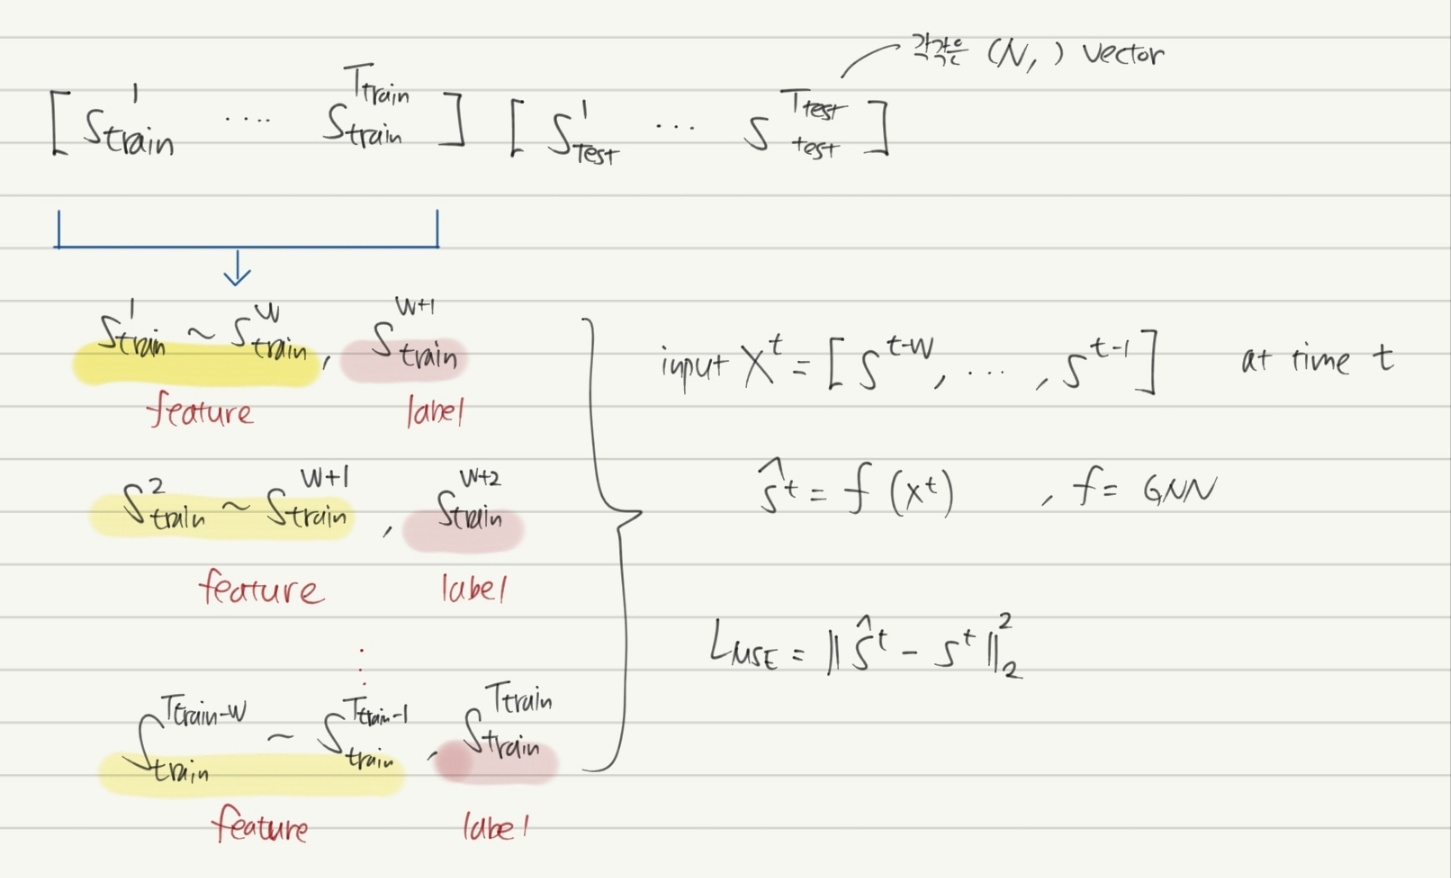 각각은 (N, ) vector
[ S^1_train .... S^{Ttrain}_train ] [ S^1_Test ... S^{Ttest}_test ]
S^1_train ~ S^W_train , S^{W+1}_train
feature label
S^2_train ~ S^{W+1}_train , S^{W+2}_train
feature label
⋮
S^{Ttrain-W}_train ~ S^{Ttrain-1}_train , S^{Ttrain}_train
feature label
input X^t = [ S^{t-W}, ... , S^{t-1} ] at time t
Ŝ^t = f (X^t) , f = GNN
L_MSE = || Ŝ^t - S^t ||_2^2